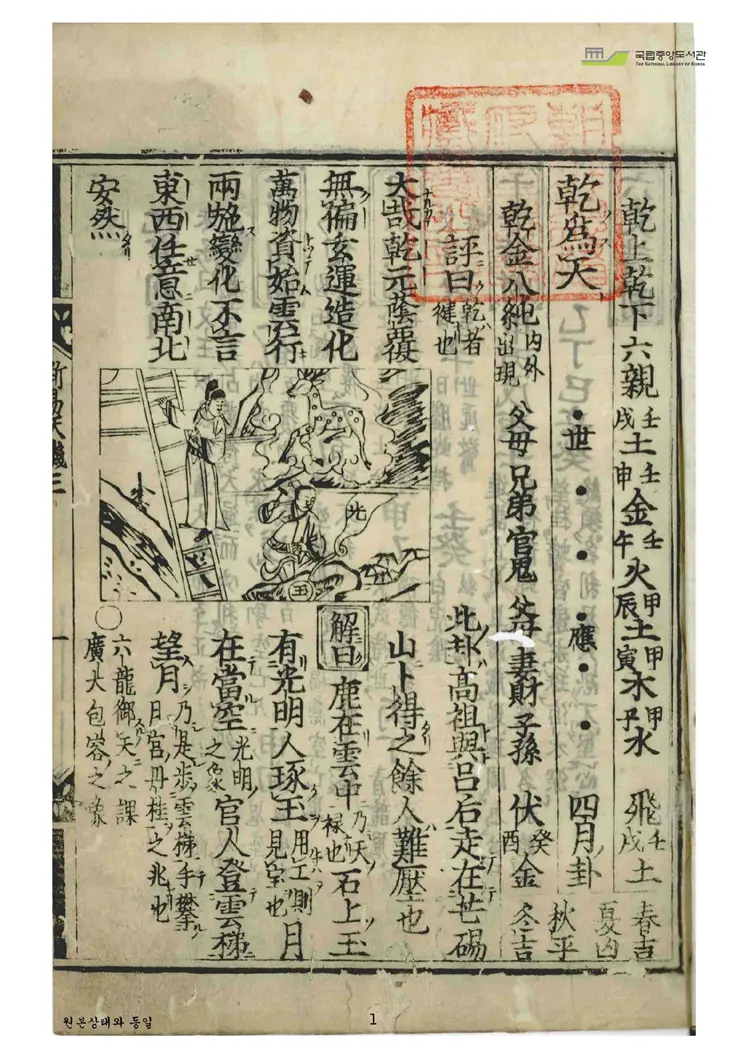 국립중앙도서관
THE NATIONAL LIBRARY OF KOREA
乾上乾下六親 壬戌土 壬申金 壬午火 甲辰土 甲寅木 甲子水 飛壬戌土 春吉夏凶
乾爲天 世 應 四月卦 秋平冬吉
乾金八純 內外出現 父母兄弟官鬼父母妻財子孫 伏癸酉金
評曰乾者健也
此卦高祖與呂后走在芒碭
大哉乾元蔭覆
山卜得之餘人難壓也
無偏玄運造化
萬物資始雲行
兩施變化不言
東西任意南北
安然
光
玉
解曰鹿在雲中乃天祿也石上玉
有光明人琢玉用工則見宝也月
在當空光明之象官人登雲梯
望月乃是步雲梯手攀月宮丹桂之兆也
〇六龍御天之課
廣大包容之象
原
원본상태와 동일
1